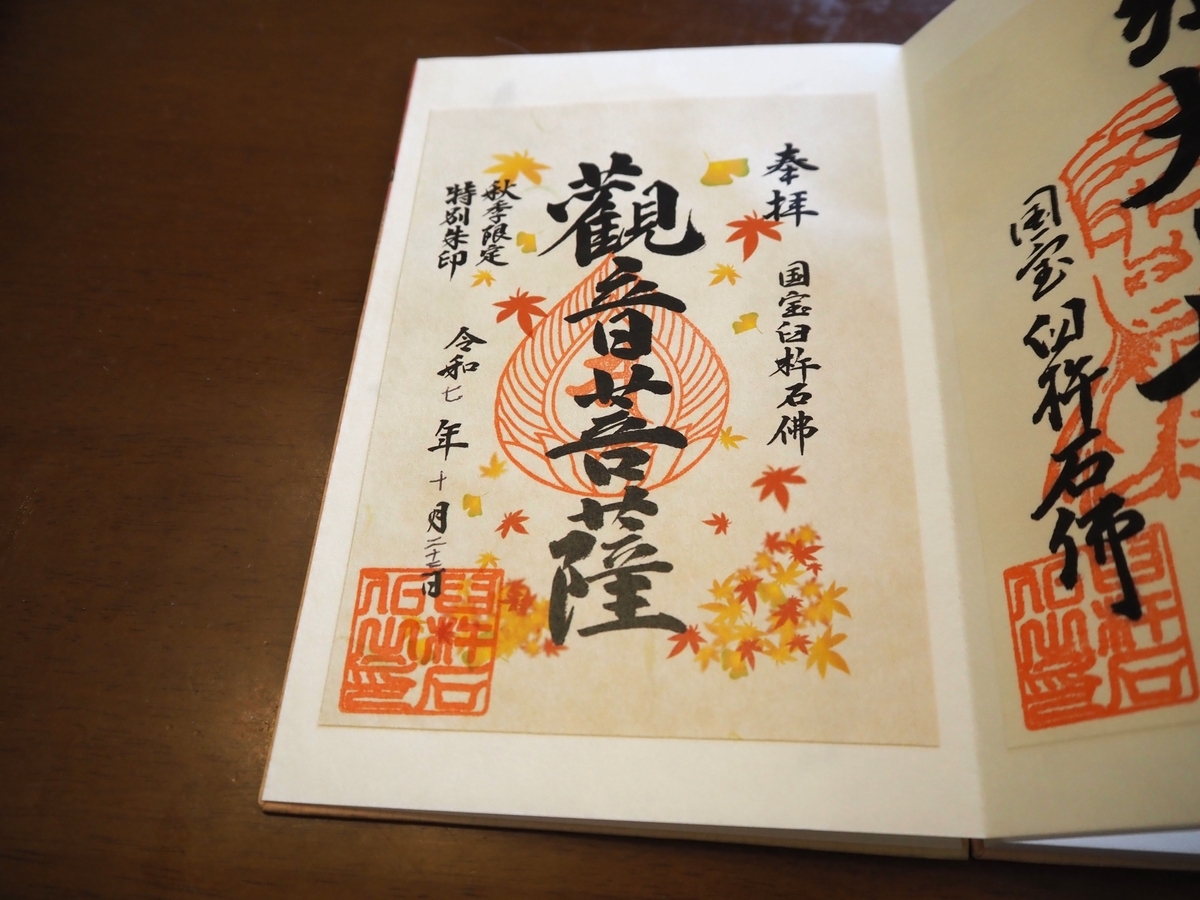 国宝臼杵石佛
臼杵石
仏之印
奉拝
国宝臼杵石佛
觀音菩薩
秋季限定
特別朱印
令和七年十月二十二日
臼杵石
仏之印